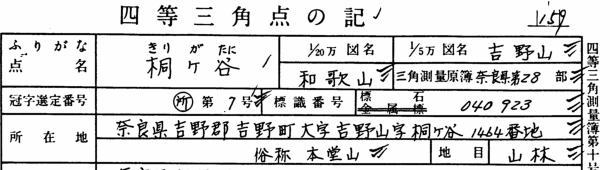 四等三角点の記
1159
ふりがな きりがたに 1/20万図名 1/5万図名 吉野山
点名 桐ヶ谷 和歌山 三角測量原簿 奈良県第28部
冠字選定番号 所 第7号 標識番号 標石 金属標 040923
所在地 奈良県吉野郡吉野町大字吉野山字桐ヶ谷1464番地
俗称 本堂山 地目 山林
四等三角測量簿第十号